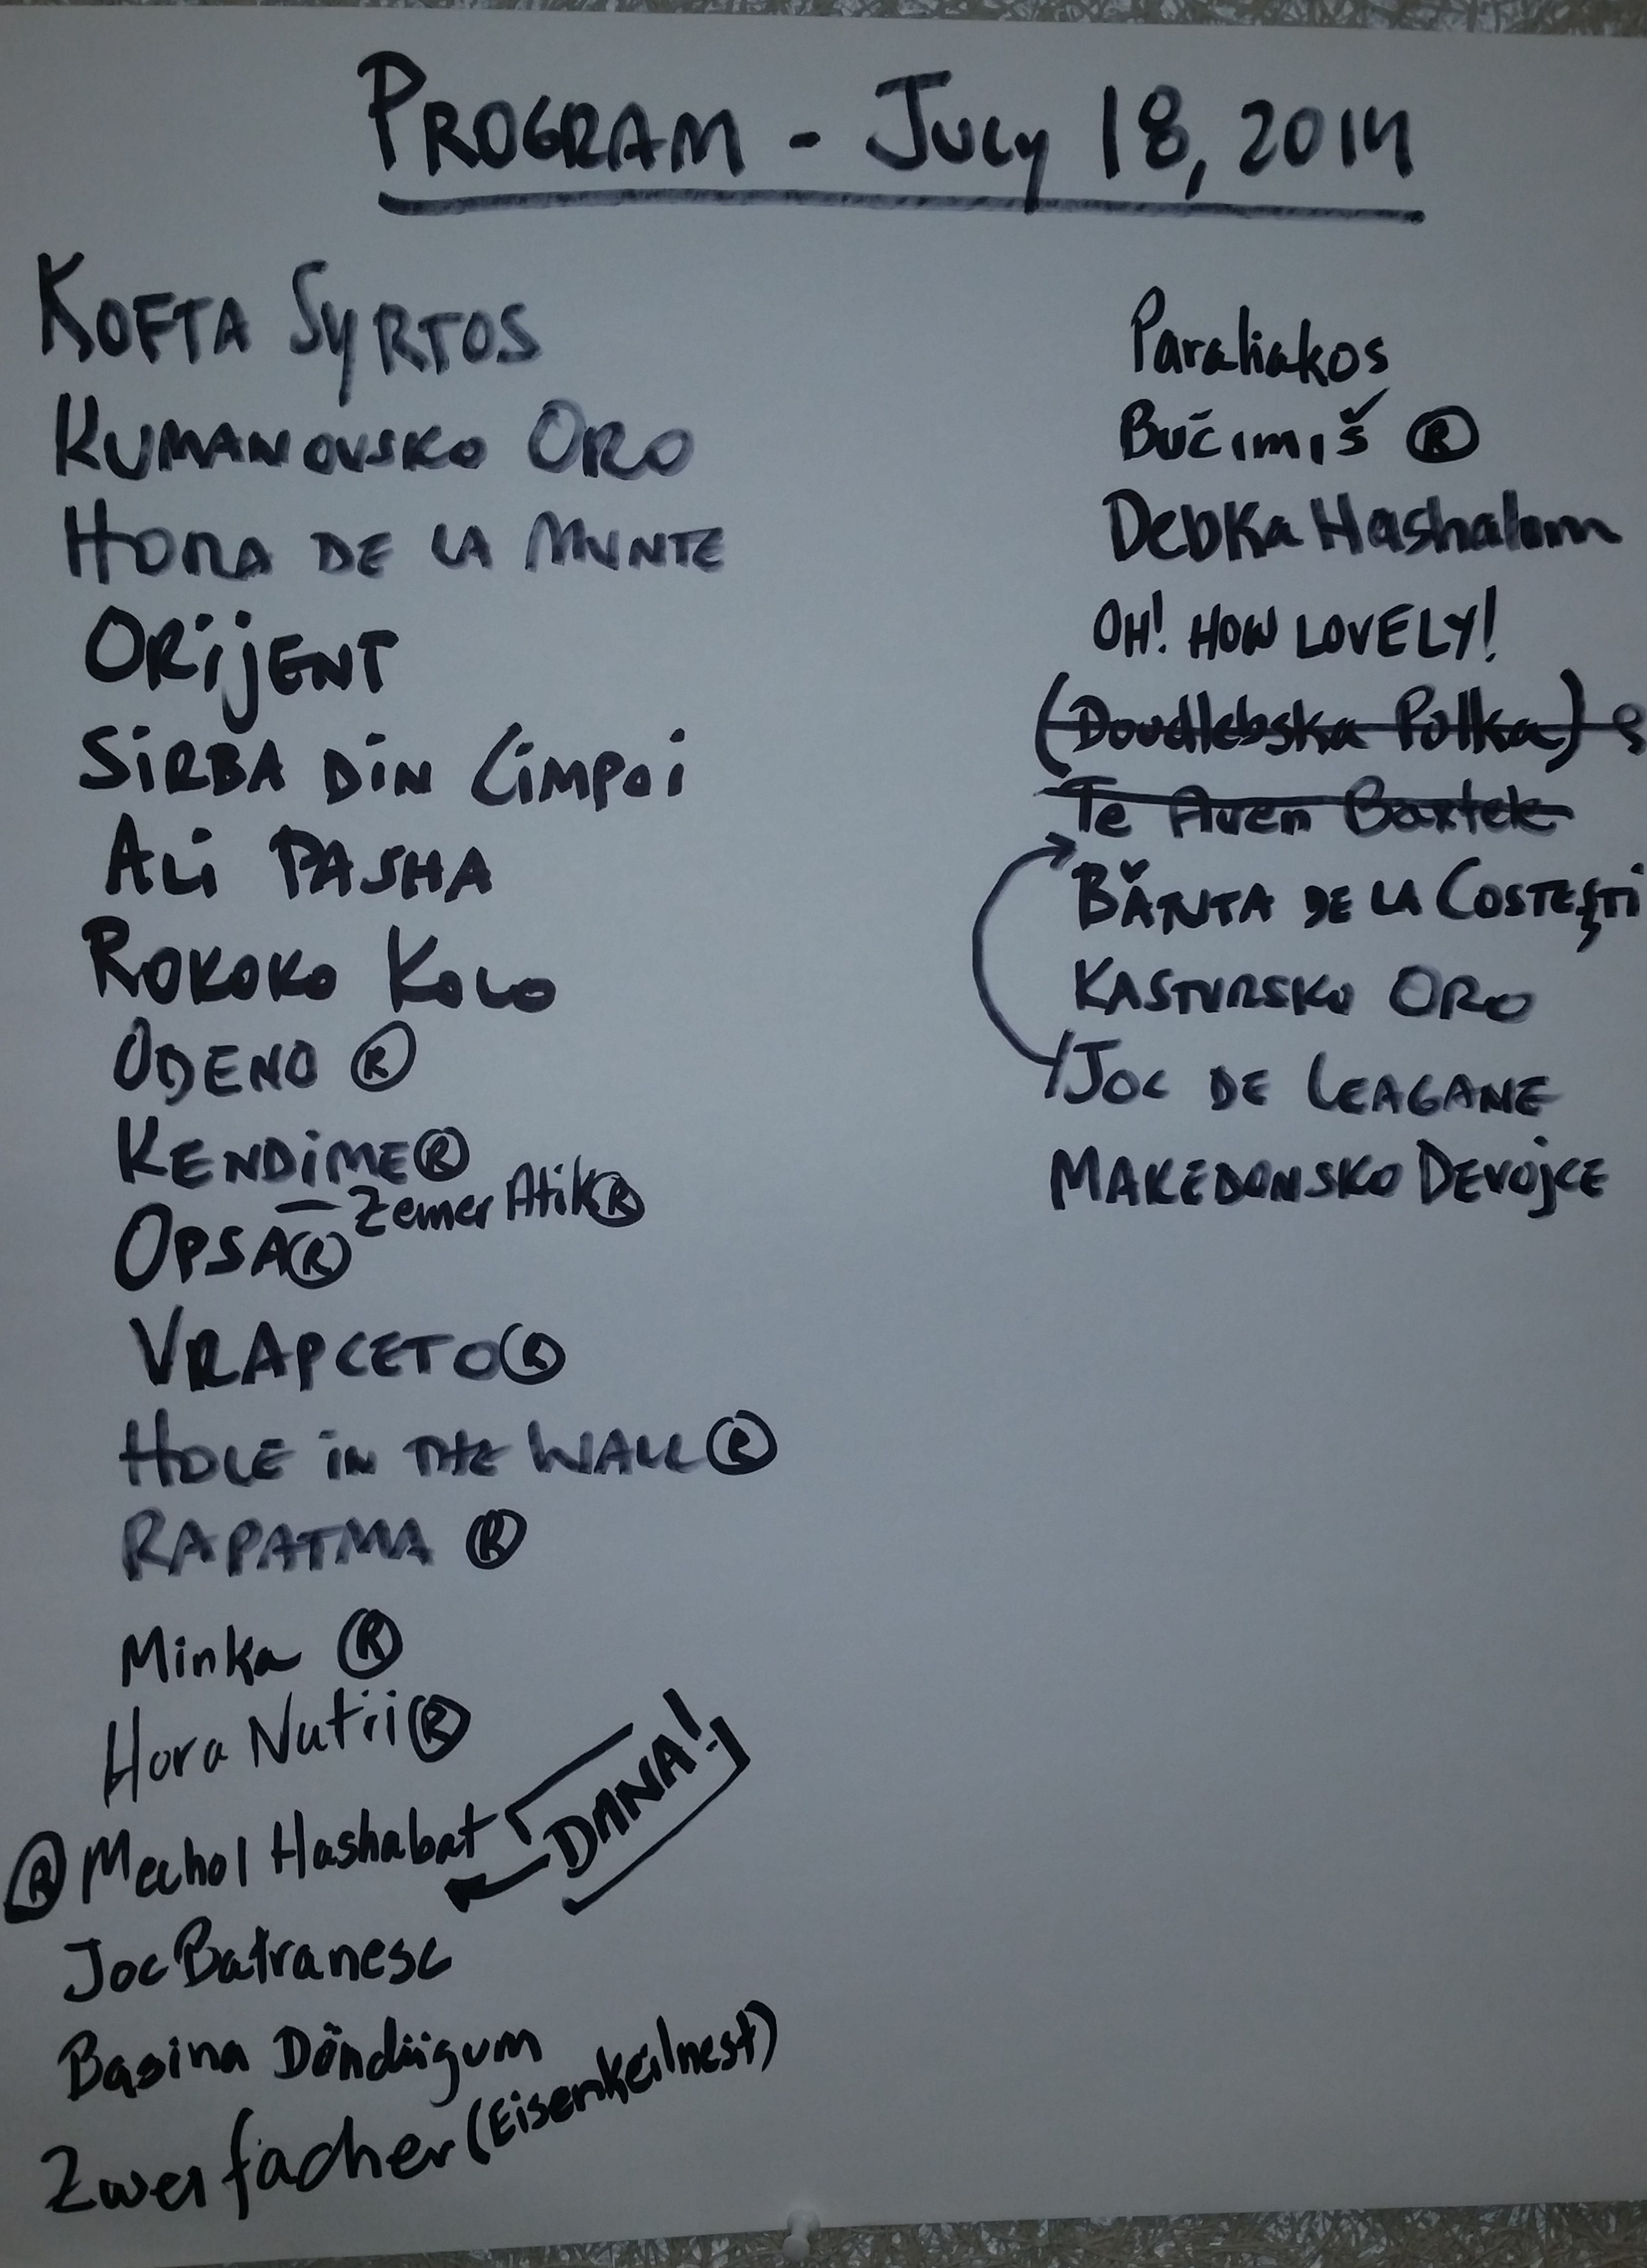 PROGRAM - JULY 18, 2014
KOFTA SYRTOS
KUMANOVSKO ORO
HORA DE LA MUNTE
ORIJENT
SIRBA DIN CIMPOI
ALI PASHA
ROKOKO KOLO
ODENO Ⓡ
KENDIME Ⓡ
Zemer Atik Ⓡ
OPSA Ⓡ
VRAPCETO Ⓡ
HOLE IN THE WALL Ⓡ
RAPATMA Ⓡ
Minka Ⓡ
Hora Nutii Ⓡ
DANA!
Ⓡ Mechol Hashabat
Joc Batranesc
Basina Döndügum
Zweifacher (Eisenkeilnest)
Paraliakos
Bučimiš Ⓡ
Debka Hashalom
OH! HOW LOVELY!
(Doudlebska Polka)
Te Aven Baxtele
BĂNTA DE LA COSTEȘTI
KASTURSKO ORO
JOC DE LEAGANE
MAKEDONSKO DEVOJCE